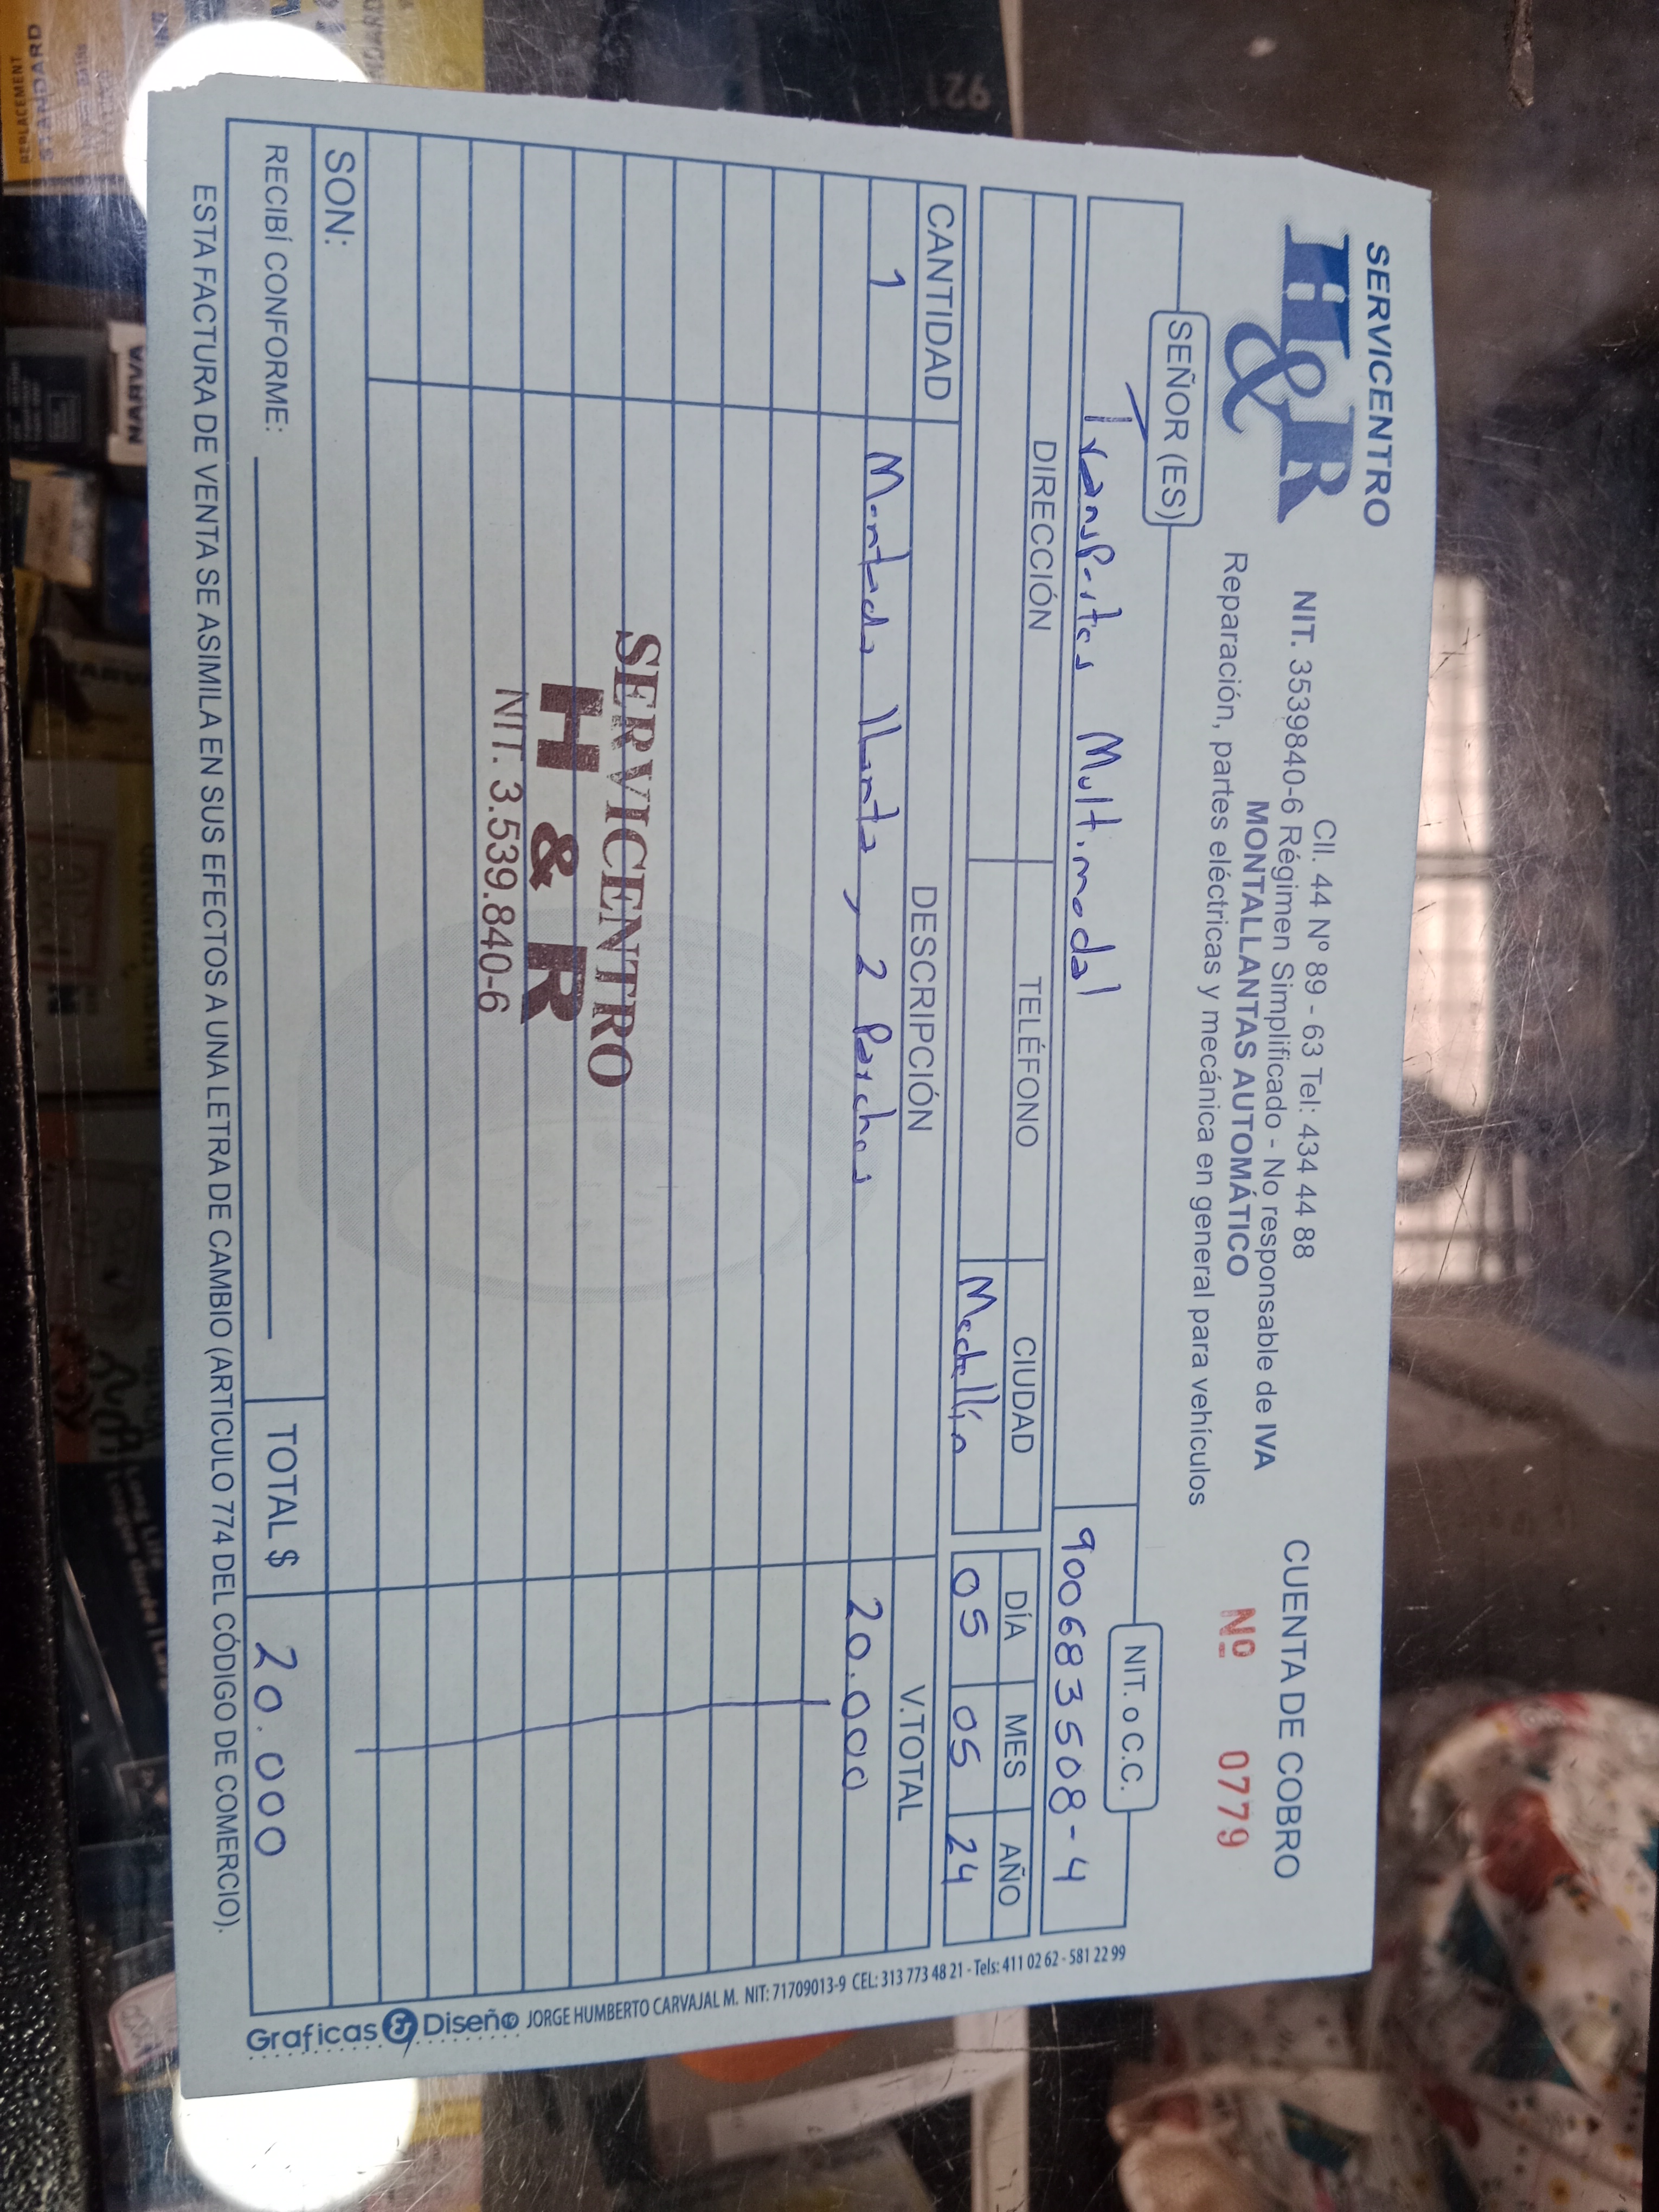 SERVICENTRO
H&R
Cll. 44 Nº 89 - 63 Tel: 434 44 88
NIT. 3539840-6 Régimen Simplificado - No responsable de IVA
MONTALLANTAS AUTOMÁTICO
Reparación, partes eléctricas y mecánica en general para vehículos
CUENTA DE COBRO
Nº 0779
SEÑOR (ES)
NIT. o C.C.
Transportes Multimodal
900683508-4
DIRECCIÓN TELÉFONO CIUDAD DÍA MES AÑO
Medellín 05 05 24
CANTIDAD DESCRIPCIÓN V.TOTAL
1 Montada llanta y 2 Parches 20.000
SERVICENTRO
H & R
NIT. 3.539.840-6
SON:
RECIBÍ CONFORME:
TOTAL $ 20.000
ESTA FACTURA DE VENTA SE ASIMILA EN SUS EFECTOS A UNA LETRA DE CAMBIO (ARTICULO 774 DEL CÓDIGO DE COMERCIO).
Graficas & Diseño JORGE HUMBERTO CARVAJAL M. NIT: 71709013-9 CEL: 313 773 48 21 - Tels: 411 02 62 - 581 22 99
921
NARVA
STANDARD
REPLACEMENT